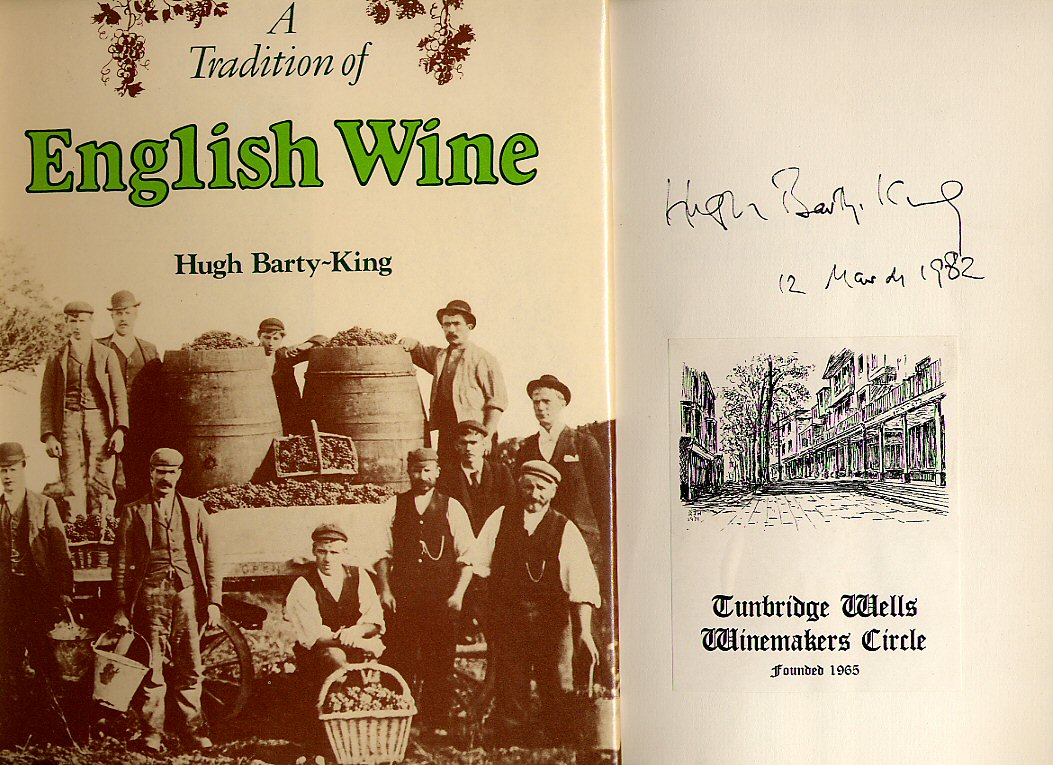 A
Tradition of
English Wine
Hugh Barty-King
Hugh Barty-King
12 March 1982
Tunbridge Wells
Winemakers Circle
Founded 1965